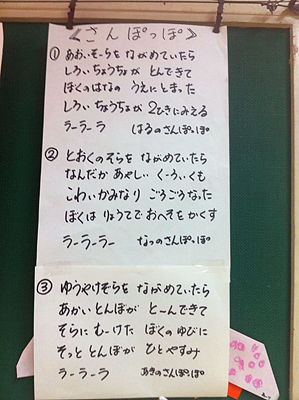 《さんぽっぽ》
① あおいそーらを ながめていたら
しろい ちょうちょが とんできて
ぼくのはなの うえにとまった
しろい ちょうちょが 2ひきにみえる
ラーラーラ はるのさんぽっぽ
② とおくのそらを ながめていたら
なんだか あやしい くーろいくも
こわいかみなり ごろごろなった
ぼくは りょうてで おへそをかくす
ラーラーラー なつのさんぽっぽ
③ ゆうやけぞらを ながめていたら
あかい とんぼが とーんできて
そらに むーけた ぼくのゆびに
そっと とんぼが ひとやすみ
ラーラーラ あきのさんぽっぽ